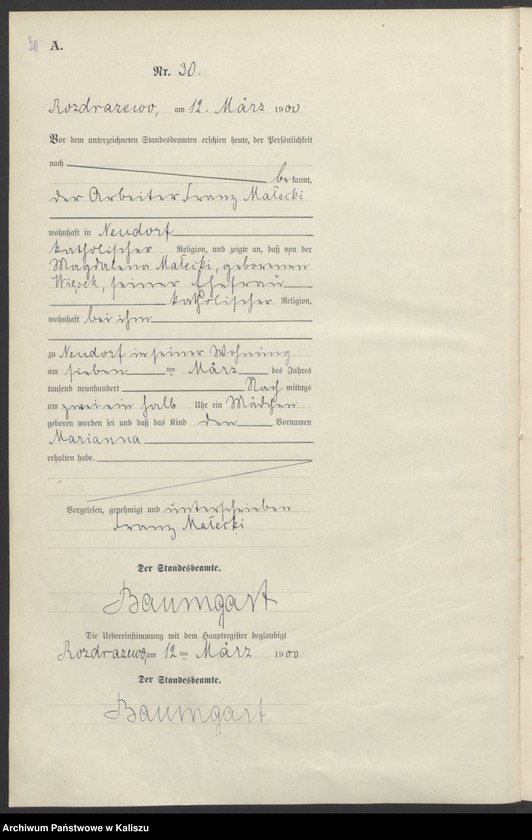 30 A.
Nr. 30.
Rozdrazewo, am 12. März 1900
Vor dem unterzeichneten Standesbeamten erschien heute, der Persönlichkeit
nach
bekannt,
der Arbeiter Franz Małecki
wohnhaft in Neudorf
katholischer Religion, und zeigte an, daß von der
Magdalena Małecki, geborenen
Więcek, seiner Ehefrau
katholischer Religion,
wohnhaft bei ihm
zu Neudorf in seiner Wohnung
am sieben ten März des Jahres
tausend neunhundert Nach mittags
um zwei ein halb Uhr ein Mädchen
geboren worden sei und daß das Kind den Vornamen
Marianna
erhalten habe.
Vorgelesen, genehmigt und unterschrieben
Franz Małecki
Der Standesbeamte.
Baumgart
Die Uebereinstimmung mit dem Hauptregister beglaubigt
Rozdrazewo, am 12 ten März 1900
Der Standesbeamte.
Baumgart
Archiwum Państwowe w Kaliszu